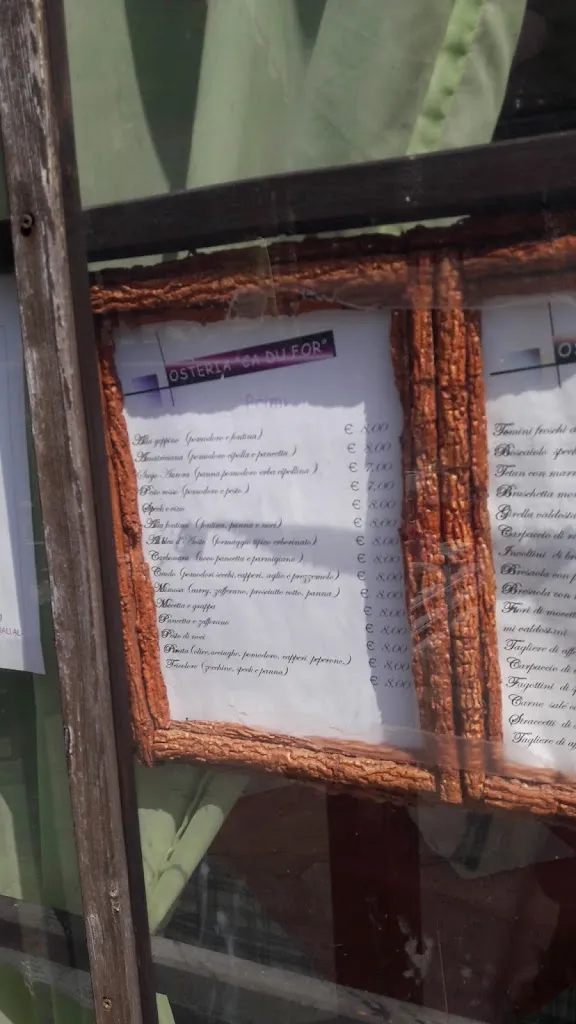 OSTERIA "CA DU FOR"
Primi
Alla geppino (pomodoro e fontina) € 8,00
Amatriciana (pomodoro cipolla e pancetta) € 8,00
Sugo Aurora (panna pomodoro erba cipollina) € 7,00
Pesto rosso (pomodoro e pesto) € 7,00
Speck e noci € 8,00
Alla fontina (fontina, panna e noci) € 8,00
Al bleu d'Aosta (formaggio tipico erborinato) € 8,00
Carbonara (uovo pancetta e parmigiano) € 8,00
Crudo (pomodori secchi, capperi, aglio e prezzemolo) € 8,00
Mimosa (curry, zafferano, prosciutto cotto, panna) € 8,00
Mocetta e grappa € 8,00
Pancetta e zafferano € 8,00
Pesto di noci € 8,00
Pirata (olive, acciughe, pomodoro, capperi, peperone,) € 8,00
Tirolese (zucchine, speck e panna) € 8,00
OSTE
Tomini freschi a
Boscaiolo spec
Tetan con mar
Bruschetta mo
Girella valdosta
Carpaccio di
Involtini di br
Bresaola con
Bresaola con
Fiori di
mi valdostani
Tagliere di aff
Carpaccio di
Fagottini di
Carne salé
Straccetti di
Tagliere di a